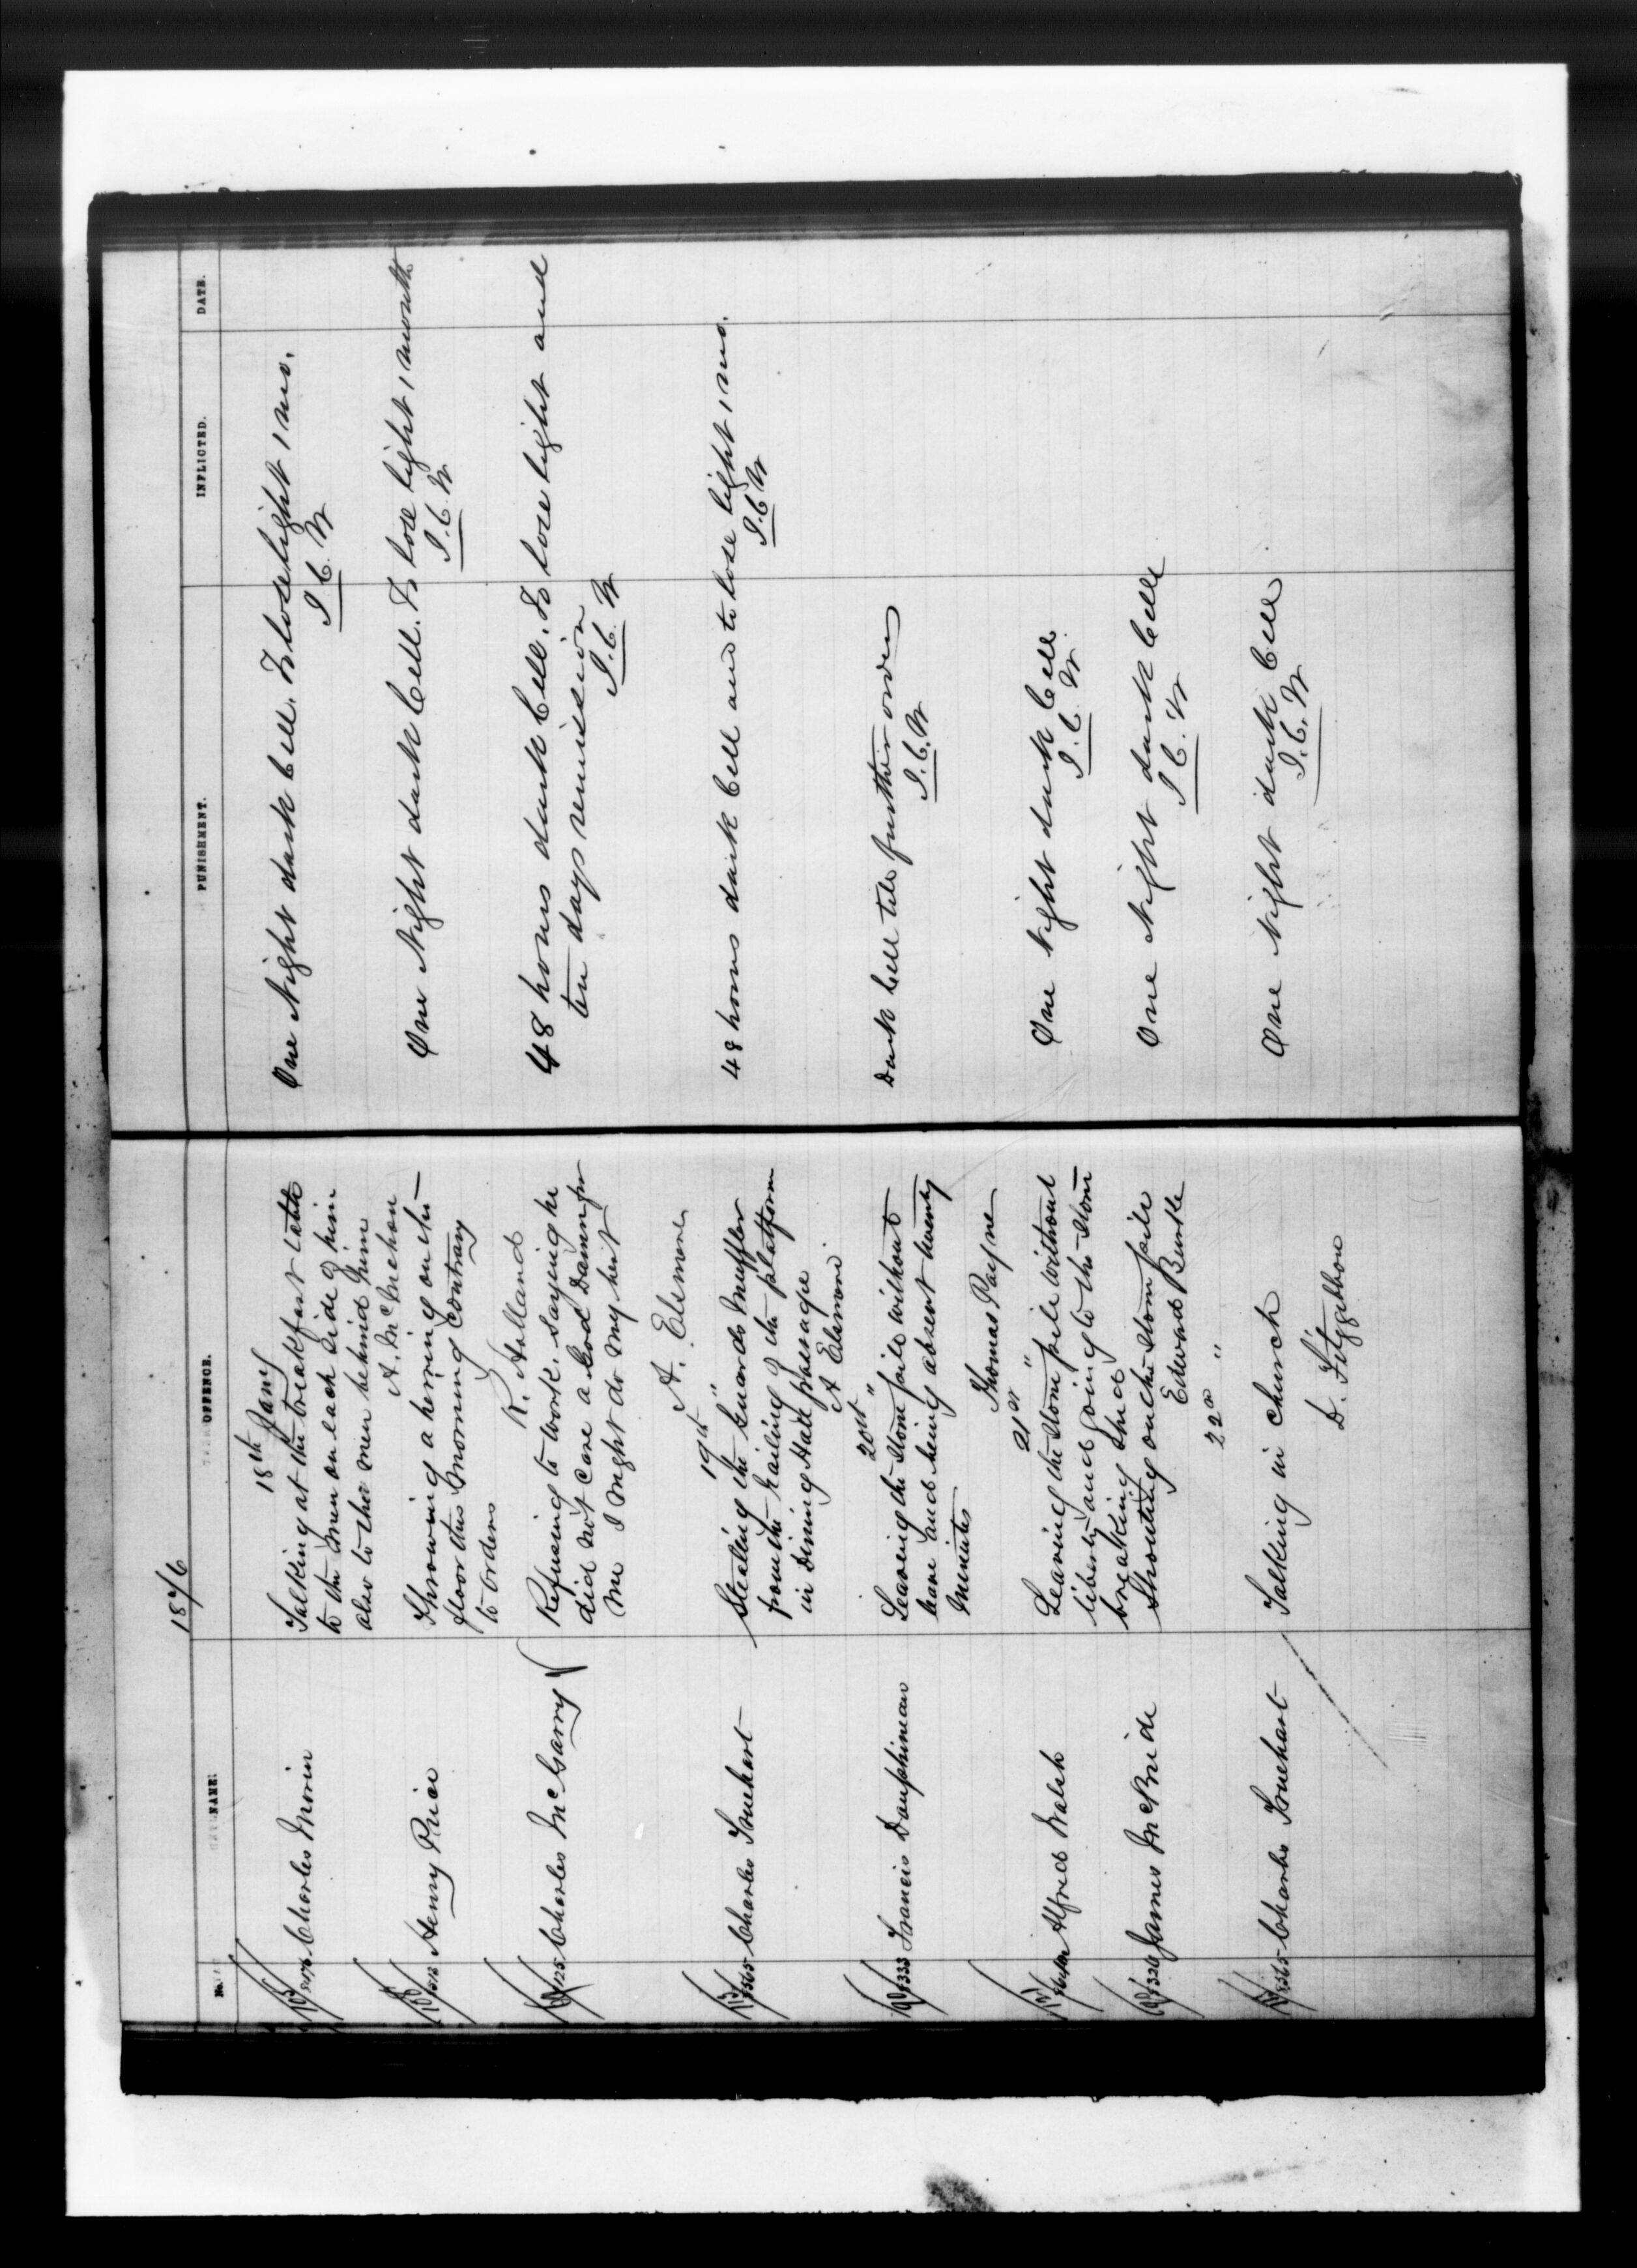 1876
No. NAME. OFFENCE. PUNISHMENT. INFLICTED. DATE.
18th Jany
Charles Morin Talking at the breakfast table One Night dark Cell. To lose light 1 mo.
to the men on each side of him I. C. W
also to the men behind him
A. McMehon
Henry Price Throwing a herring on the One Night dark Cell. To lose light 1 month
floor this morning contrary I. C. W
to orders
R. Holland
Charles McGarry Refusing to work. Saying he 48 hours dark Cell. To lose light and
did not care a God Damn for ten days remission
me I might do my best I. C. W
A. Elsmere
19th "
3565 Charles Truehart Stealing the Guards Muffler 48 hours dark Cell and to lose light 1 mo.
from the railing of the platform I. C. W
in Dining Hall passage
A Elsmere
20th "
333 Francis Dauphineau Leaving the Stone pile without Dark Cell till further orders
leave and being absent twenty I. C. W
minutes
Thomas Payne
21st "
Alfred Walsh Leaving the Stone pile without One Night dark Cell
liberty and going to the Stone I. C. W
breaking Shed
James McBride Shouting on the Stone pile One Night dark Cell
Edward Burke I. C. W
22nd "
3565 Charles Truehart Talking in Church One Night dark Cell
D. Fitzgibbon I. C. W